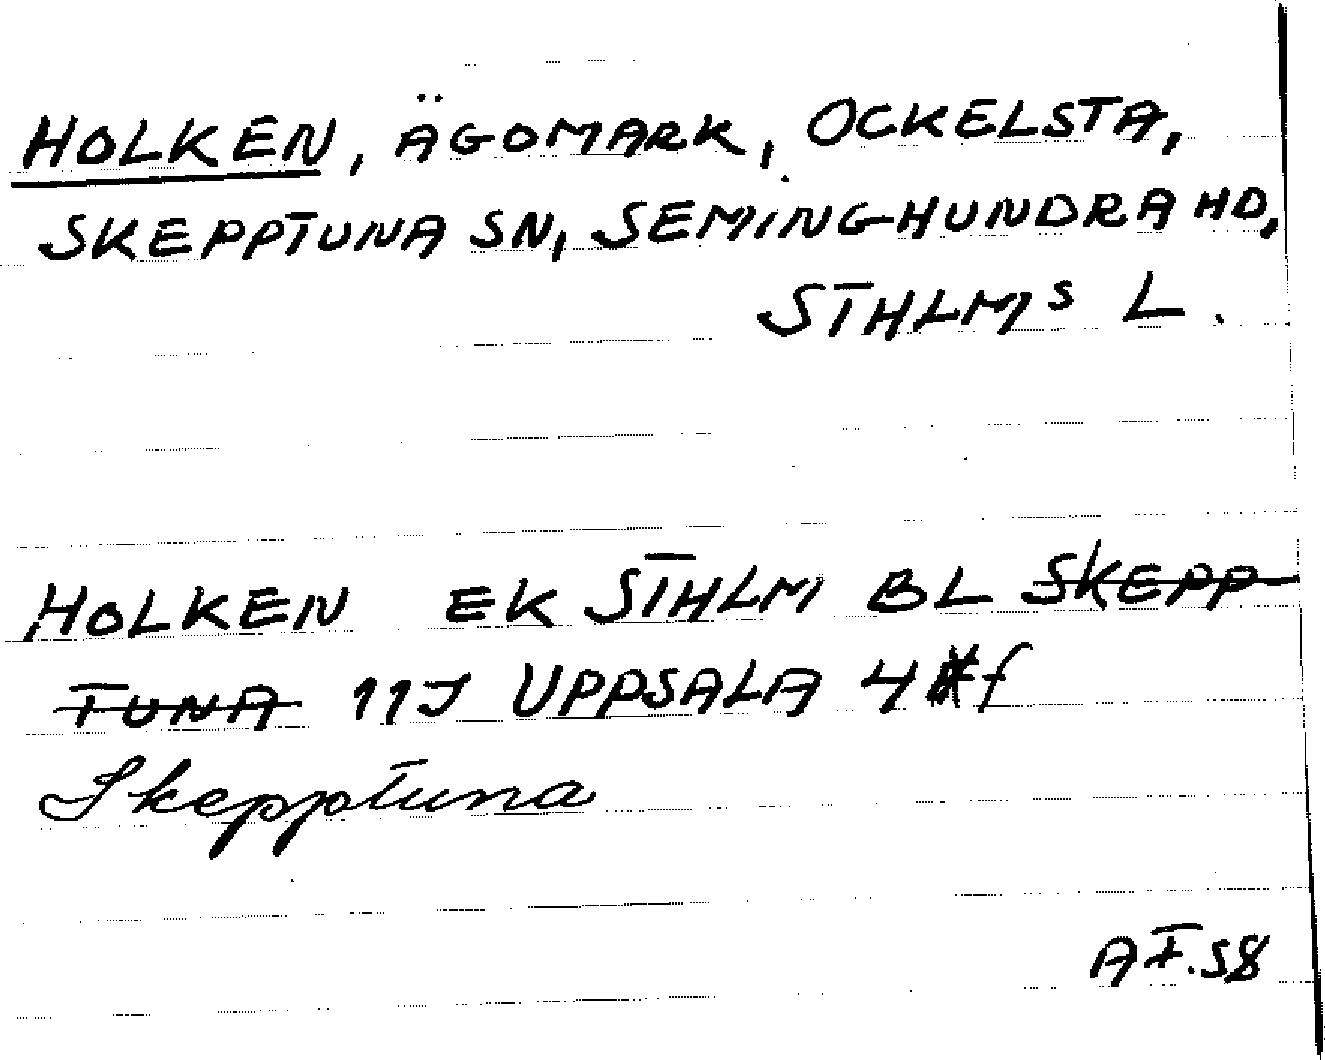 HOLKEN, ÄGOMARK, OCKELSTA,
SKEPPTUNA SN, SEMINGHUNDRA HD,
STHLMS L.
HOLKEN EK STHLM BL SKEPP-
TUNA 11J UPPSALA 4 f
Skepptuna
AF.58